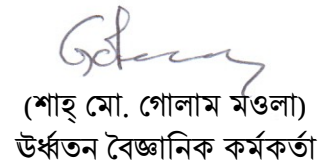 (শাহ্ মো. গোলাম মওলা)
ঊর্ধ্বতন বৈজ্ঞানিক কর্মকর্তা